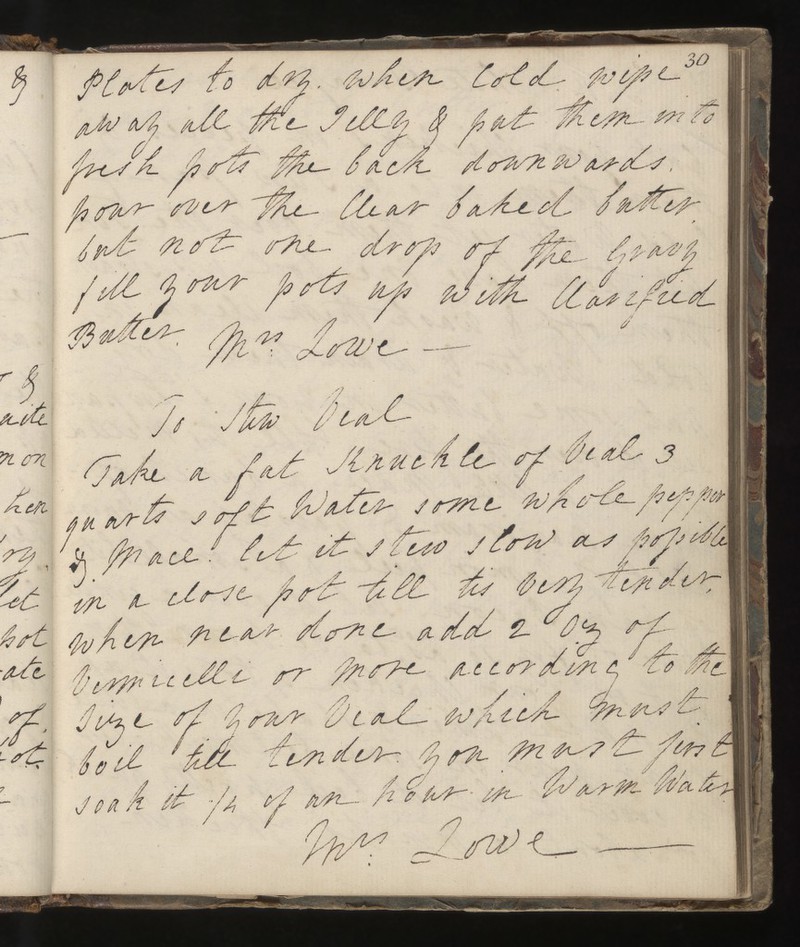 30
Plates to dry. when Cold wipe
away all the Jelly & put them into
fresh pots the back downwards.
pour over the Clear baked butter.
but not one drop of the Gravy
fill your pots up with Clarified
Butter. Mrs. Lowe —
To Stew Veal
Take a fat Knuckle of Veal 3
quarts soft Water some whole pepper
& Mace. let it stew slow as possible
in a close pot till tis very tender.
when near done add 2 Oz of
Vermicelli or more according to the
Size of your Veal which must
boil till tender. you must first
soak it 1/4 of an hour in Warm Water
Mrs. Lowe —